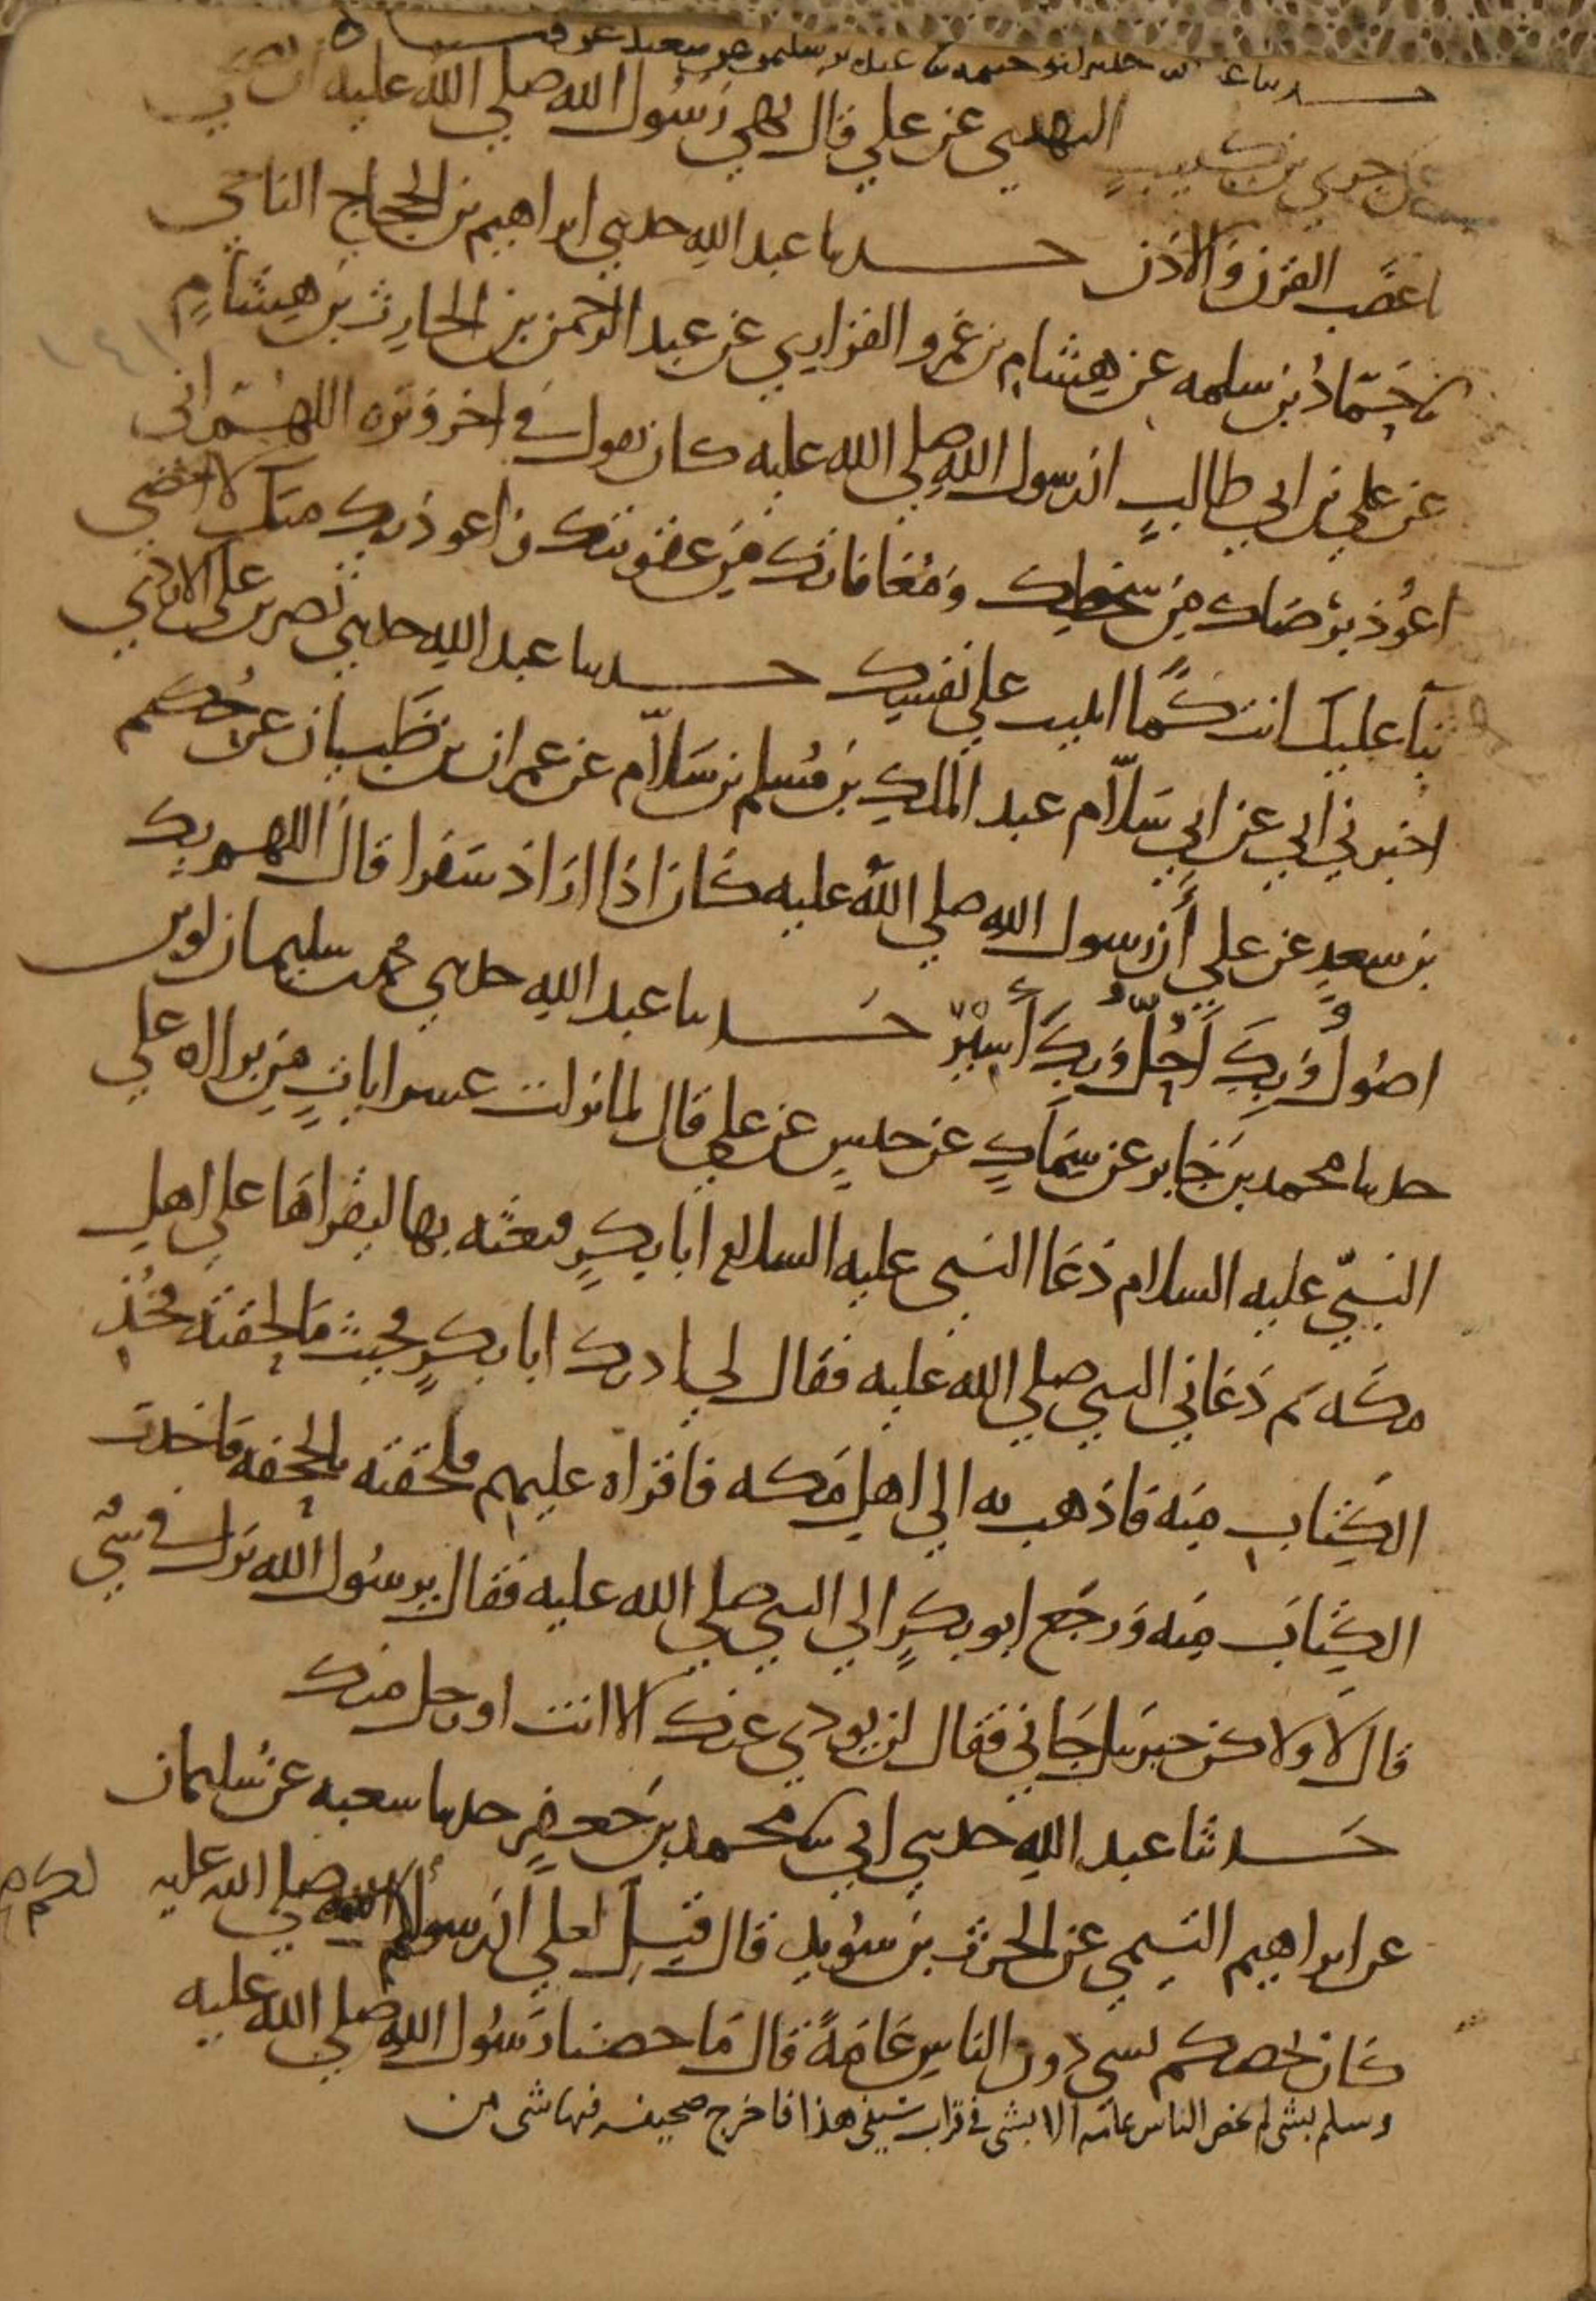 حدثنا عبد الله حدثني ابو خيثمه عبده بن سليمن عن سعيد عن قتاده
عن جري بن كليب النهدي عن علي قال نهى رسول الله صلى الله عليه ان يضحي
باعضب القرن والاذن حدثنا عبد الله حدثني ابراهيم بن الحجاج الناجي
نا حماد بن سلمه عن هشام بن عمرو الفزاري عن عبد الرحمن بن الحارث بن هشام
عن علي بن ابي طالب ان رسول الله صلى الله عليه كان يقول في اخر وتره اللهم اني
اعوذ برضاك من سخطك ومعافاتك من عقوبتك واعوذ بك منك لا احصي
ثنا عليك انت كما اثنيت على نفسك حدثنا عبد الله حدثني نصر بن علي الازدي
اخبرني ابي عن ابي سلام عبد الملك بن مسلم بن سلام عن عمران بن ظبيان عن حكيم
بن سعد عن علي ان رسول الله صلى الله عليه كان اذا اراد سفرا قال اللهم بك
اصول وبك احل وبك اسير حدثنا عبد الله حدثني محمد بن سليمان لوين
حدثنا محمد بن جابر عن سماك عن حنش عن علي قال لما نزلت عشر ايات من براه على
النبي عليه السلام دعا النبي عليه السلام ابا بكر فبعثه بها ليقراها على اهل
مكه ثم دعاني النبي صلى الله عليه فقال لي ادرك ابا بكر فحيث ما لحقته فخذ
الكتاب منه فاذهب به الى اهل مكه فاقراه عليهم فلحقته بالجحفه فاخذت
الكتاب منه ورجع ابو بكر الى النبي صلى الله عليه فقال يرسول الله نزل في شي
قال لا ولاكن جبريل جاني فقال لن يودي عنك الا انت او رجل منك
حدثنا عبد الله حدثني ابي نا محمد بن جعفر حدثنا شعبه عن سليمان
عن ابراهيم التيمي عن الحرث بن سويد قال قيل لعلي ان رسولكم صلى الله عليه
كان يخصكم بشي دون الناس عامة قال ما خصنا رسول الله صلى الله عليه
وسلم بشي لم يخص الناس عامه الا بشي في قراب سيفي هذا فاخرج صحيفه فيها شي من